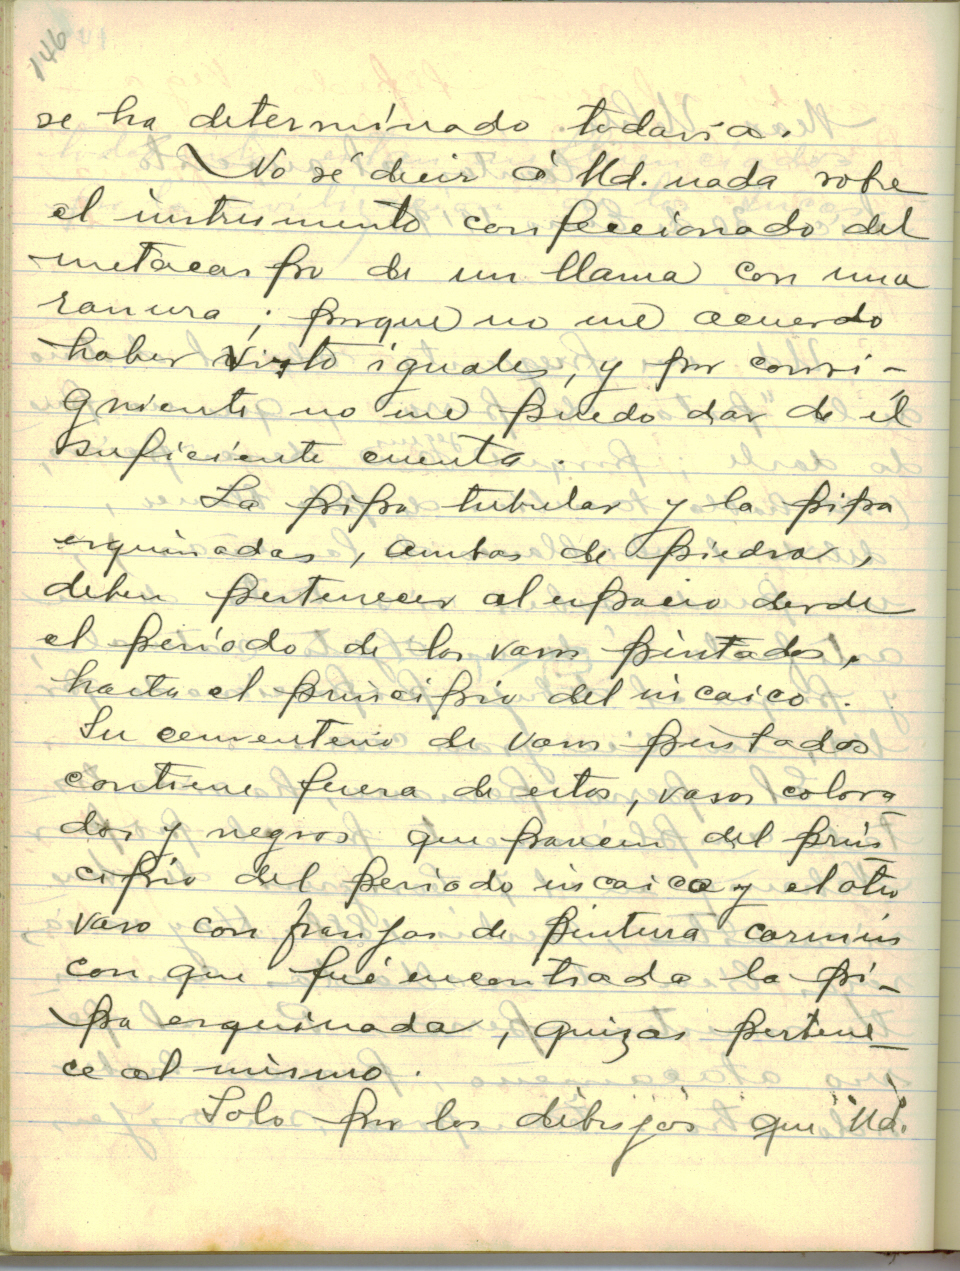 146
se ha determinado todavía.
No sé decir á Ud. nada sobre
el instrumento confeccionado del
metacarpo de un llama con una
ranura; porque no me acuerdo
haber visto iguales, y por consi-
guiente no me puedo dar de él
suficiente cuenta.
La pipa tubular y la pipa
esquinadas, ambas de piedra,
deben pertenecer al espacio desde
el período de los vasos pintados,
hasta el principio del incaico.
Su cementerio de vasos pintados
contiene fuera de estos, vasos colora
dos y negros que parecen del prin
cipio del periodo incaico y el otro
vaso con franjas de pintura carmin
con que fué encontrada la pi-
pa esquinada, quizas pertene-
ce al mismo.
Solo por los dibujos que Ud.